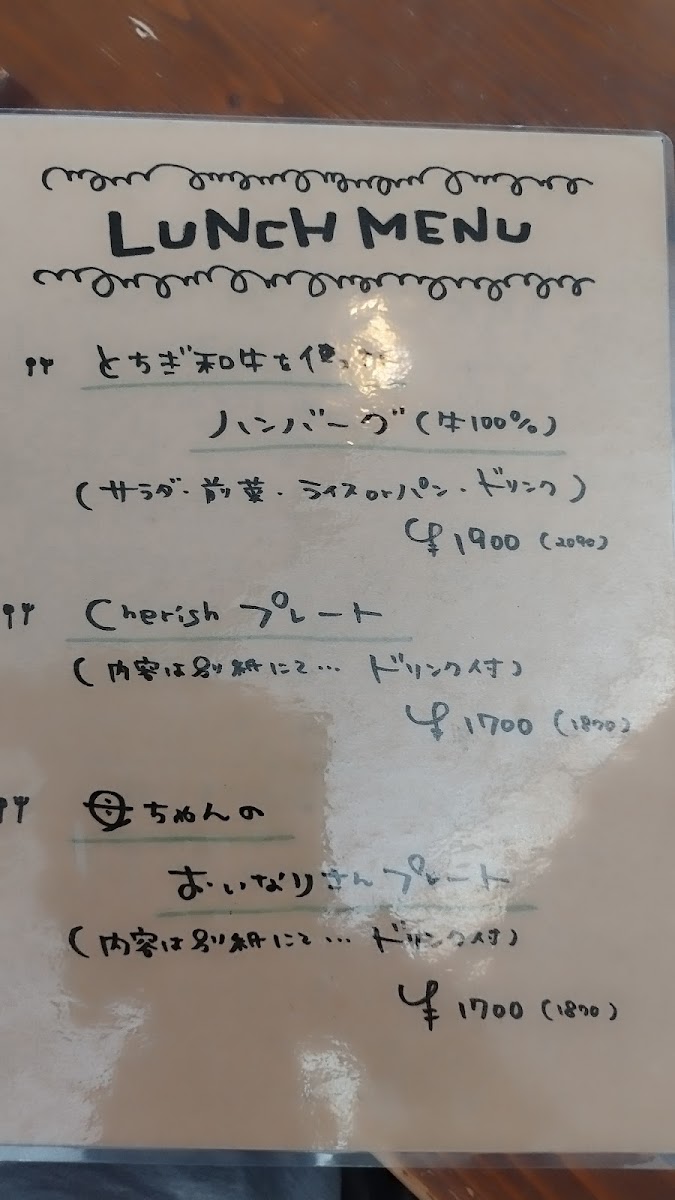 LUNCH MENU
とちぎ和牛を使った
ハンバーグ(牛100%)
(サラダ・前菜・ライスorパン・ドリンク)
¥1900(2090)
Cherishプレート
(内容は別紙にて… ドリンク付)
¥1700(1870)
母ちゃんの
おいなりさんプレート
(内容は別紙にて… ドリンク付)
¥1700(1870)